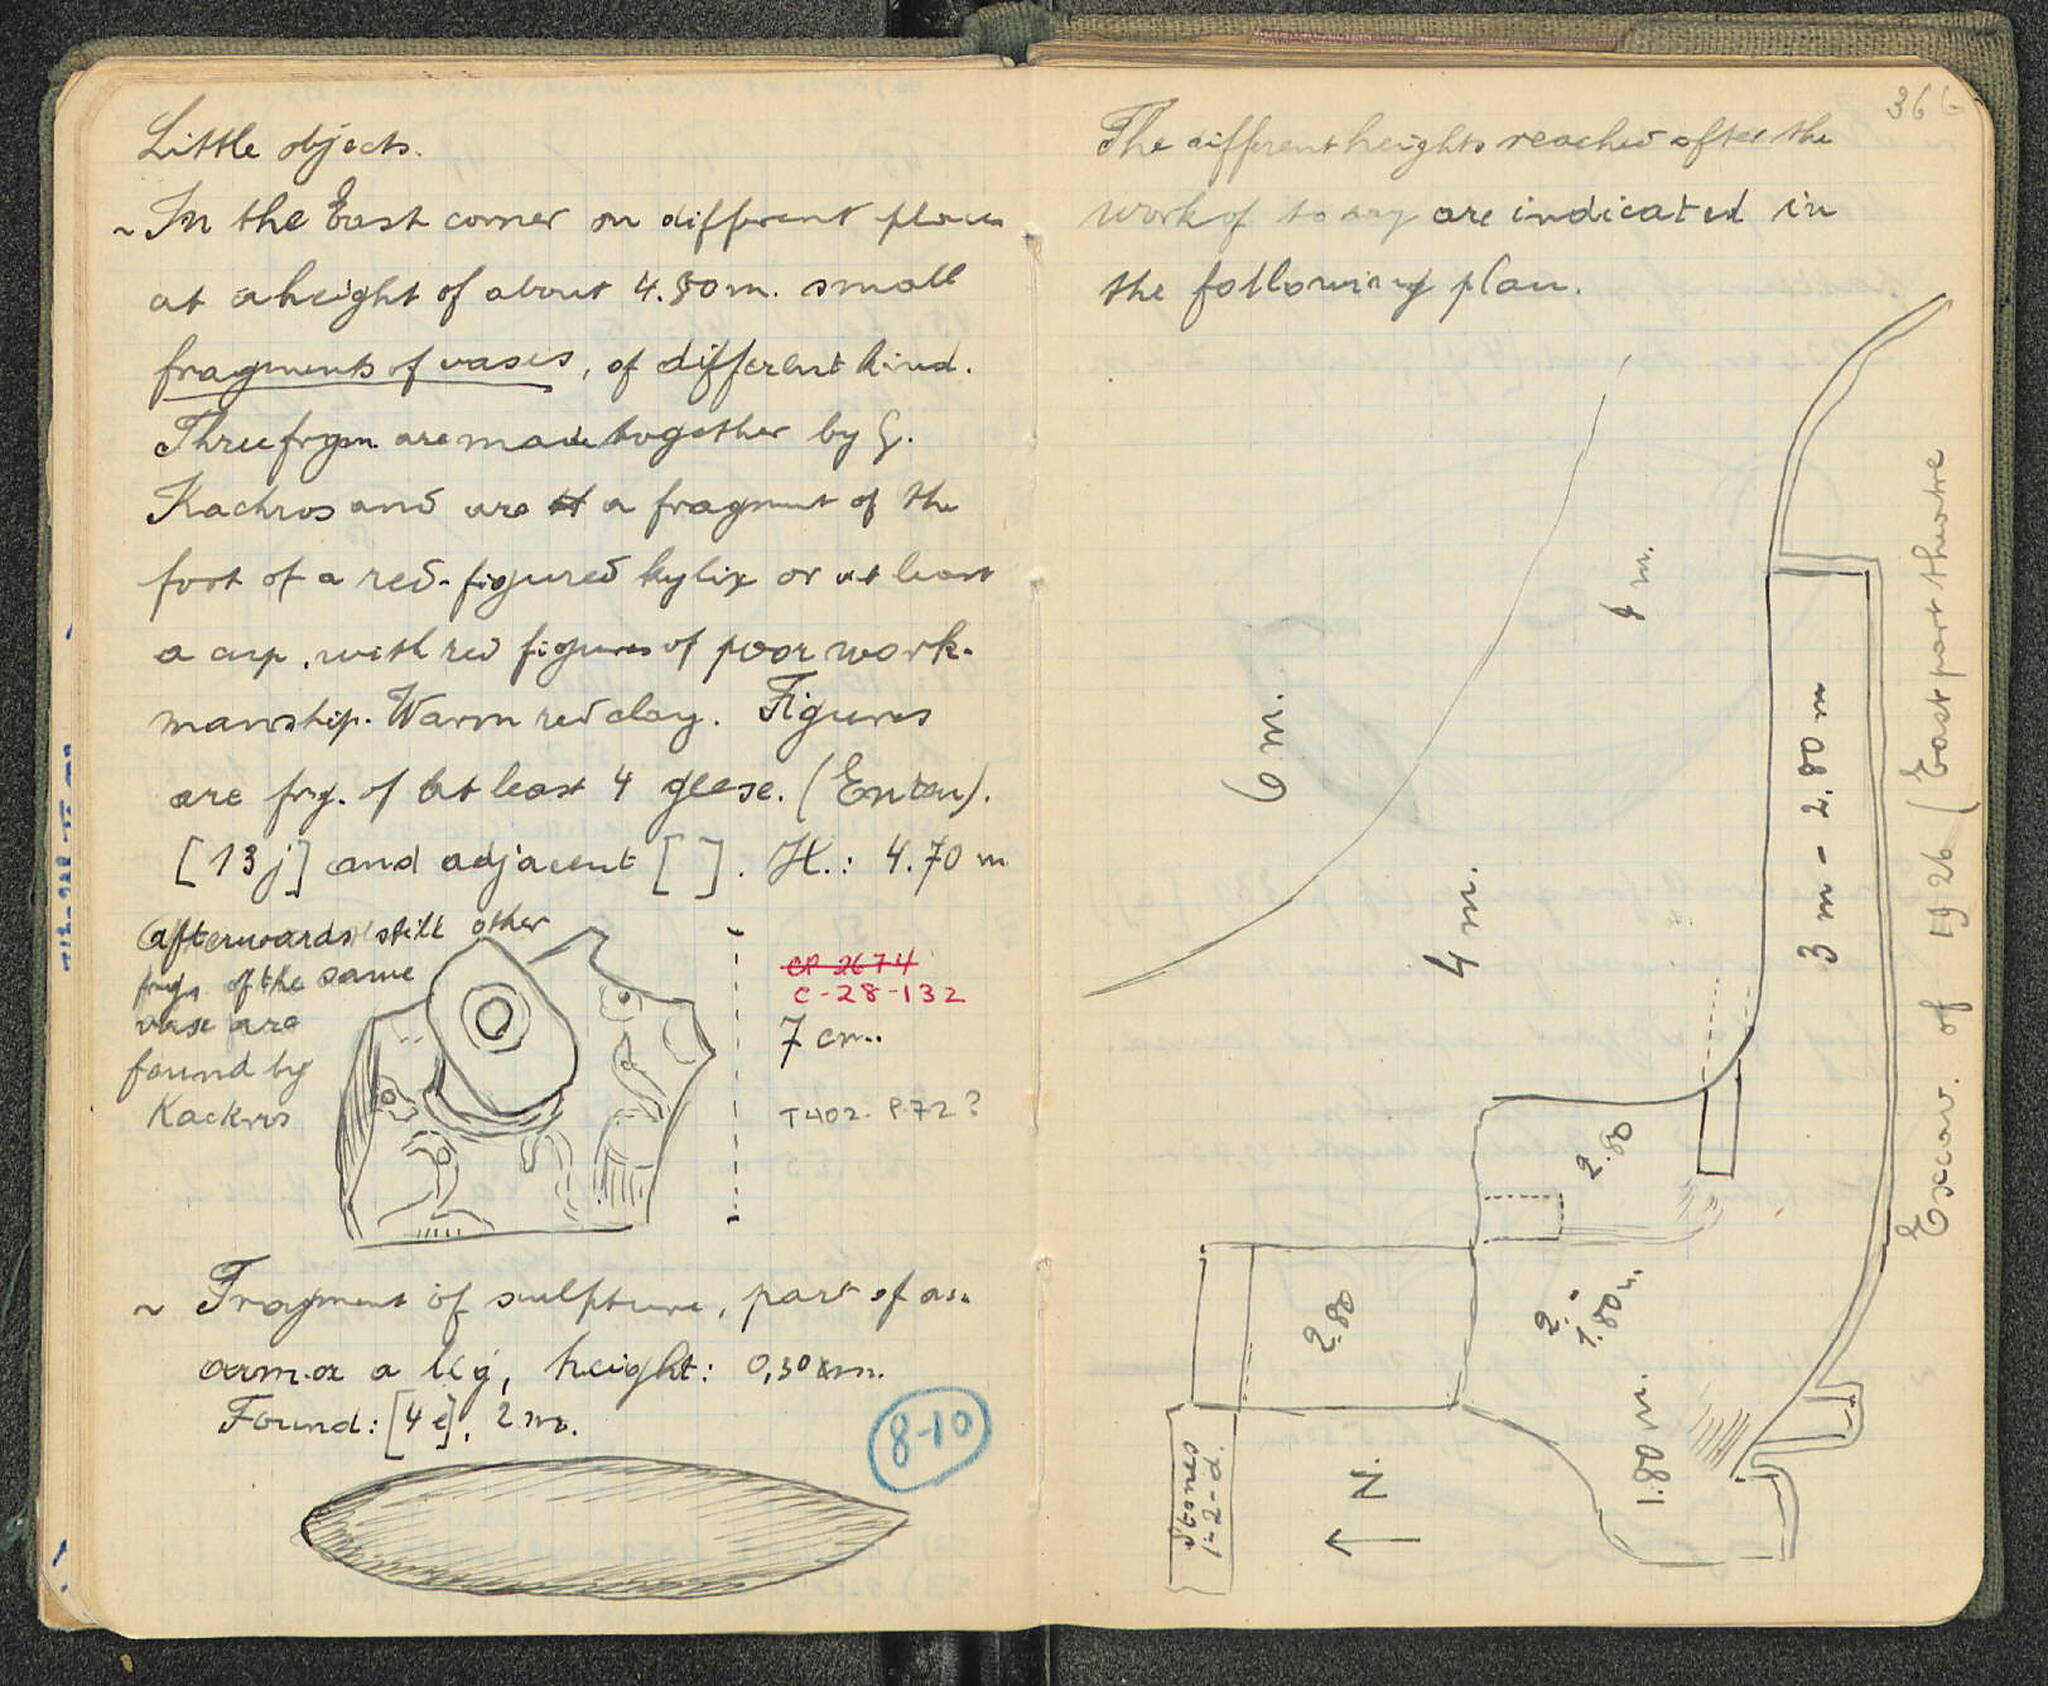 Little objects.
~ In the East corner on different places
at a height of about 4.80 m. small
fragments of vases, of different kind.
Three frgm. are made together by G.
Kachros and are a fragment of the
foot of a red-figured kylix or at least
a cup, with red figures of poor work-
manship. Warm red clay. Figures
are frg. of at least 4 geese. (Enten).
[13j] and adjacent [ ]. H.: 4.70 m
Afterwards still other
frgs. of the same
vase are
found by
Kachros
CP 2674
C-28-132
7 cm.
T402. P.72?
~ Fragment of sculpture, part of an
arm or a leg, height: 0,30 m.
Found: [4e], 2 m.
8-10
36
The different heights reached after the
work of today are indicated in
the following plan.
6 m.
4 m.
3 m - 2.80 m
Excav. of 1926 (East part theatre
2.80
2.80
2.-
1.80 m.
1.80 m.
N.
Stones
1-2-d.